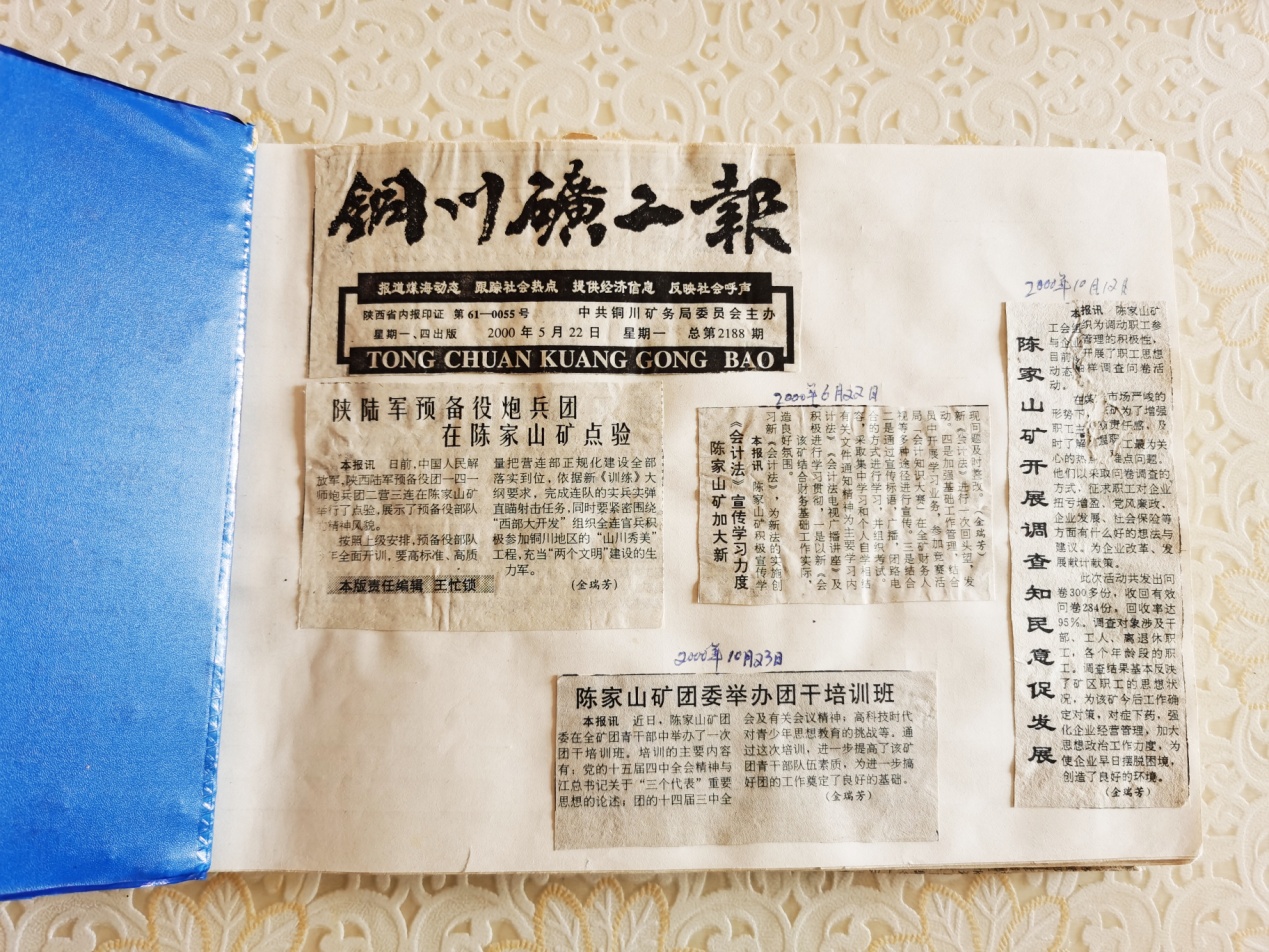 銅川礦工報
报道煤海动态 跟踪社会热点 提供经济信息 反映社会呼声
陕西省内报印证 第61—0055号 中共铜川矿务局委员会主办
星期一、四出版 2000年5月22日 星期一 总第2188期
TONG CHUAN KUANG GONG BAO
陕陆军预备役炮兵团
在陈家山矿点验
本报讯 日前,中国人民解
放军,陕西陆军预备役团一四一
师炮兵团二营三连在陈家山矿
举行了点验,展示了预备役部队
精神风貌。
按照上级安排,预备役部队
年全面开训,要高标准、高质
量把营连部正规化建设全部
落实到位,依据新《训练》大
纲要求,完成连队的实兵实弹
直瞄射击任务,同时要紧密围绕
“西部大开发”组织全连官兵积
极参加铜川地区的“山川秀美”
工程,充当“两个文明”建设的生
力军。
(金瑞芳)
本版责任编辑 王忙锁
2000年6月22日
《会计法》宣传学习力度
陈家山矿加大新
本报讯 陈家山矿积极宣传学
习新《会计法》,为新法的实施创
造良好氛围。
该矿结合财务基础工作实际,
积极进行学习贯彻,一是以新《会
计法》《会计法电视广播讲座》及
有关文件通知精神为主要学习内
容,采取集中学习和个人自学相结
合的方式进行学习,并组织考试。
二是通过宣传标语,广播,闭路电
视等多种途径进行宣传。三是结合
局「会计知识大赛」在全矿财务人
员中开展学习业务,参加竞赛活
动。四是加强基础工作管理,结合
新《会计法》进行一次回头望,发
现问题及时整改。 (金瑞芳)
2000年10月12日
陈家山矿开展调查知民意促发展
本报讯 陈家山矿
工会 织为调动职工参
与企 管理的积极性,
目前 开展了职工思想
动态 样调查问卷活
动。
在 市场严峻的
形势下, 矿为了增强
职工主 责任感,及
时了解 工最为关
心的热 难点问题,
他们以采取问卷调查的
方式,征求职工对企业
扭亏增盈、党风廉政、
企业发展、社会保险等
方面有什么好的想法与
建议。为企业改革、发
展献计献策。
此次活动共发出问
卷300多份,收回有效
问卷284份。回收率达
95%。调查对象涉及干
部、工人、离退休职
工,各个年龄段的职
工。调查结果基本反映
了矿区职工的思想状
况,为该矿今后工作确
定对策,对症下药,强
化企业经营管理,加大
思想政治工作力度,为
使企业早日摆脱困境,
创造了良好的环境。
(金瑞芳)
2000年10月23日
陈家山矿团委举办团干培训班
本报讯 近日,陈家山矿团
委在全矿团青干部中举办了一次
团干培训班。培训的主要内容
有:党的十五届四中全会精神与
江总书记关于“三个代表”重要
思想的论述;团的十四届三中全
会及有关会议精神;高科技时代
对青少年思想教育的挑战等。通
过这次培训,进一步提高了该矿
团青干部队伍素质,为进一步搞
好团的工作奠定了良好的基础。
(金瑞芳)